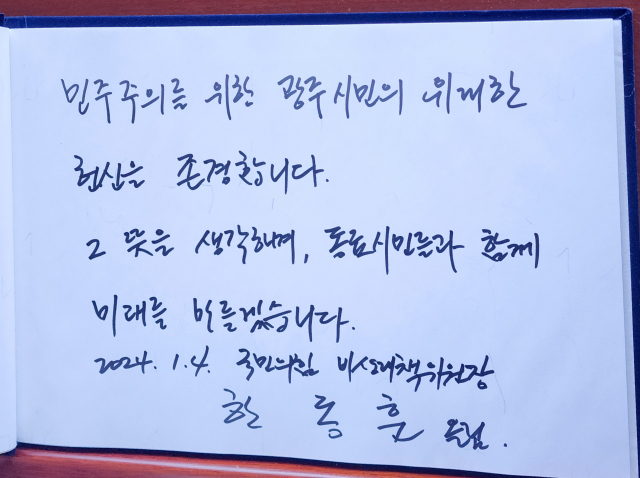 민주주의를 위한 광주시민의 위대한
헌신을 존경합니다.
그 뜻을 생각하며, 동료시민들과 함께
미래를 만들겠습니다.
2024. 1. 4. 국민의힘 비상대책위원장
한 동 훈 드림.